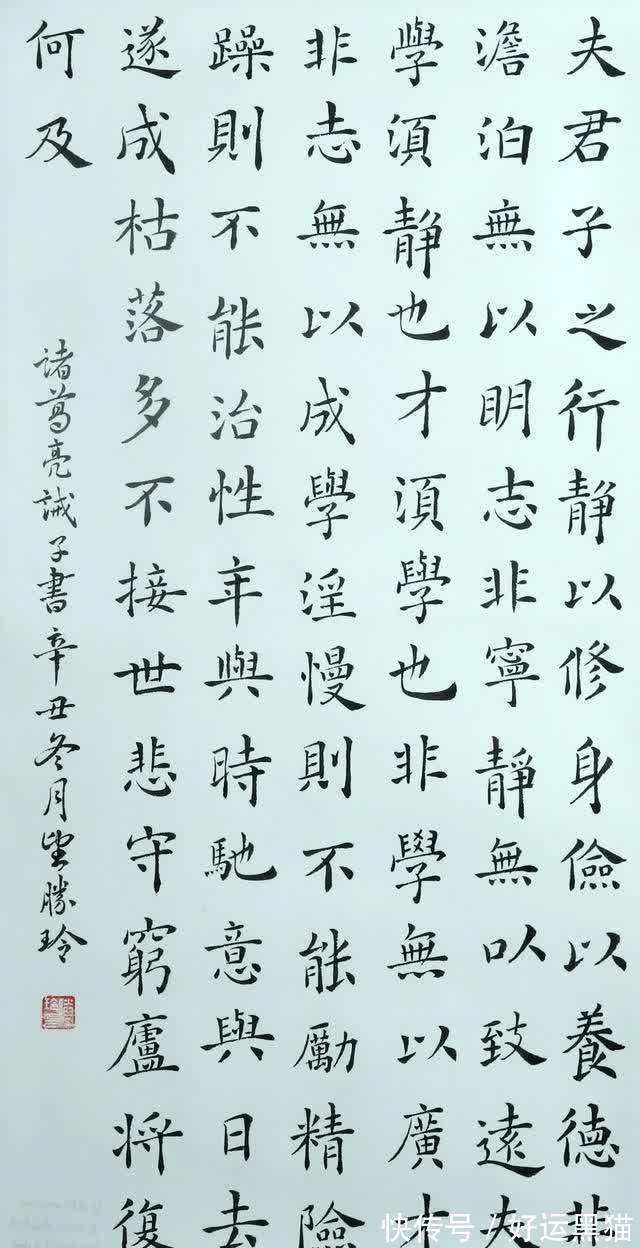 夫君子之行静以修身儉以養德非
澹泊無以明志非寧靜無以致遠夫
學須静也才須學也非學無以廣才
非志無以成學淫慢則不能勵精險
躁則不能治性年與時馳意與日去
遂成枯落多不接世悲守窮廬將復
何及
諸葛亮誡子書辛丑冬月望勝玲
快传号／好运黑猫